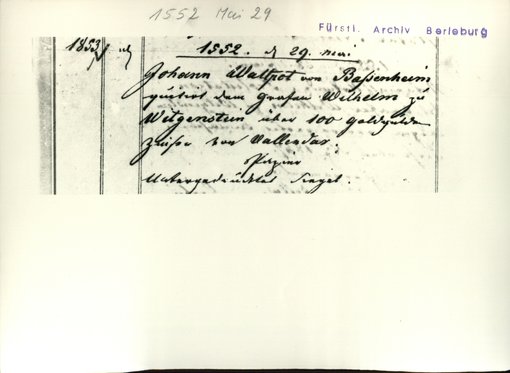 1552 Mai 29
Fürstl. Archiv Berleburg
1853
1552. d 29. Mai
Johann Waltpot von Bassenheim
quitirt dem Grafen Wilhelm zu
Witgenstein über 100 Goldgulden
Zinse von Vallendar.
Papier
Untergedrücktes Siegel.